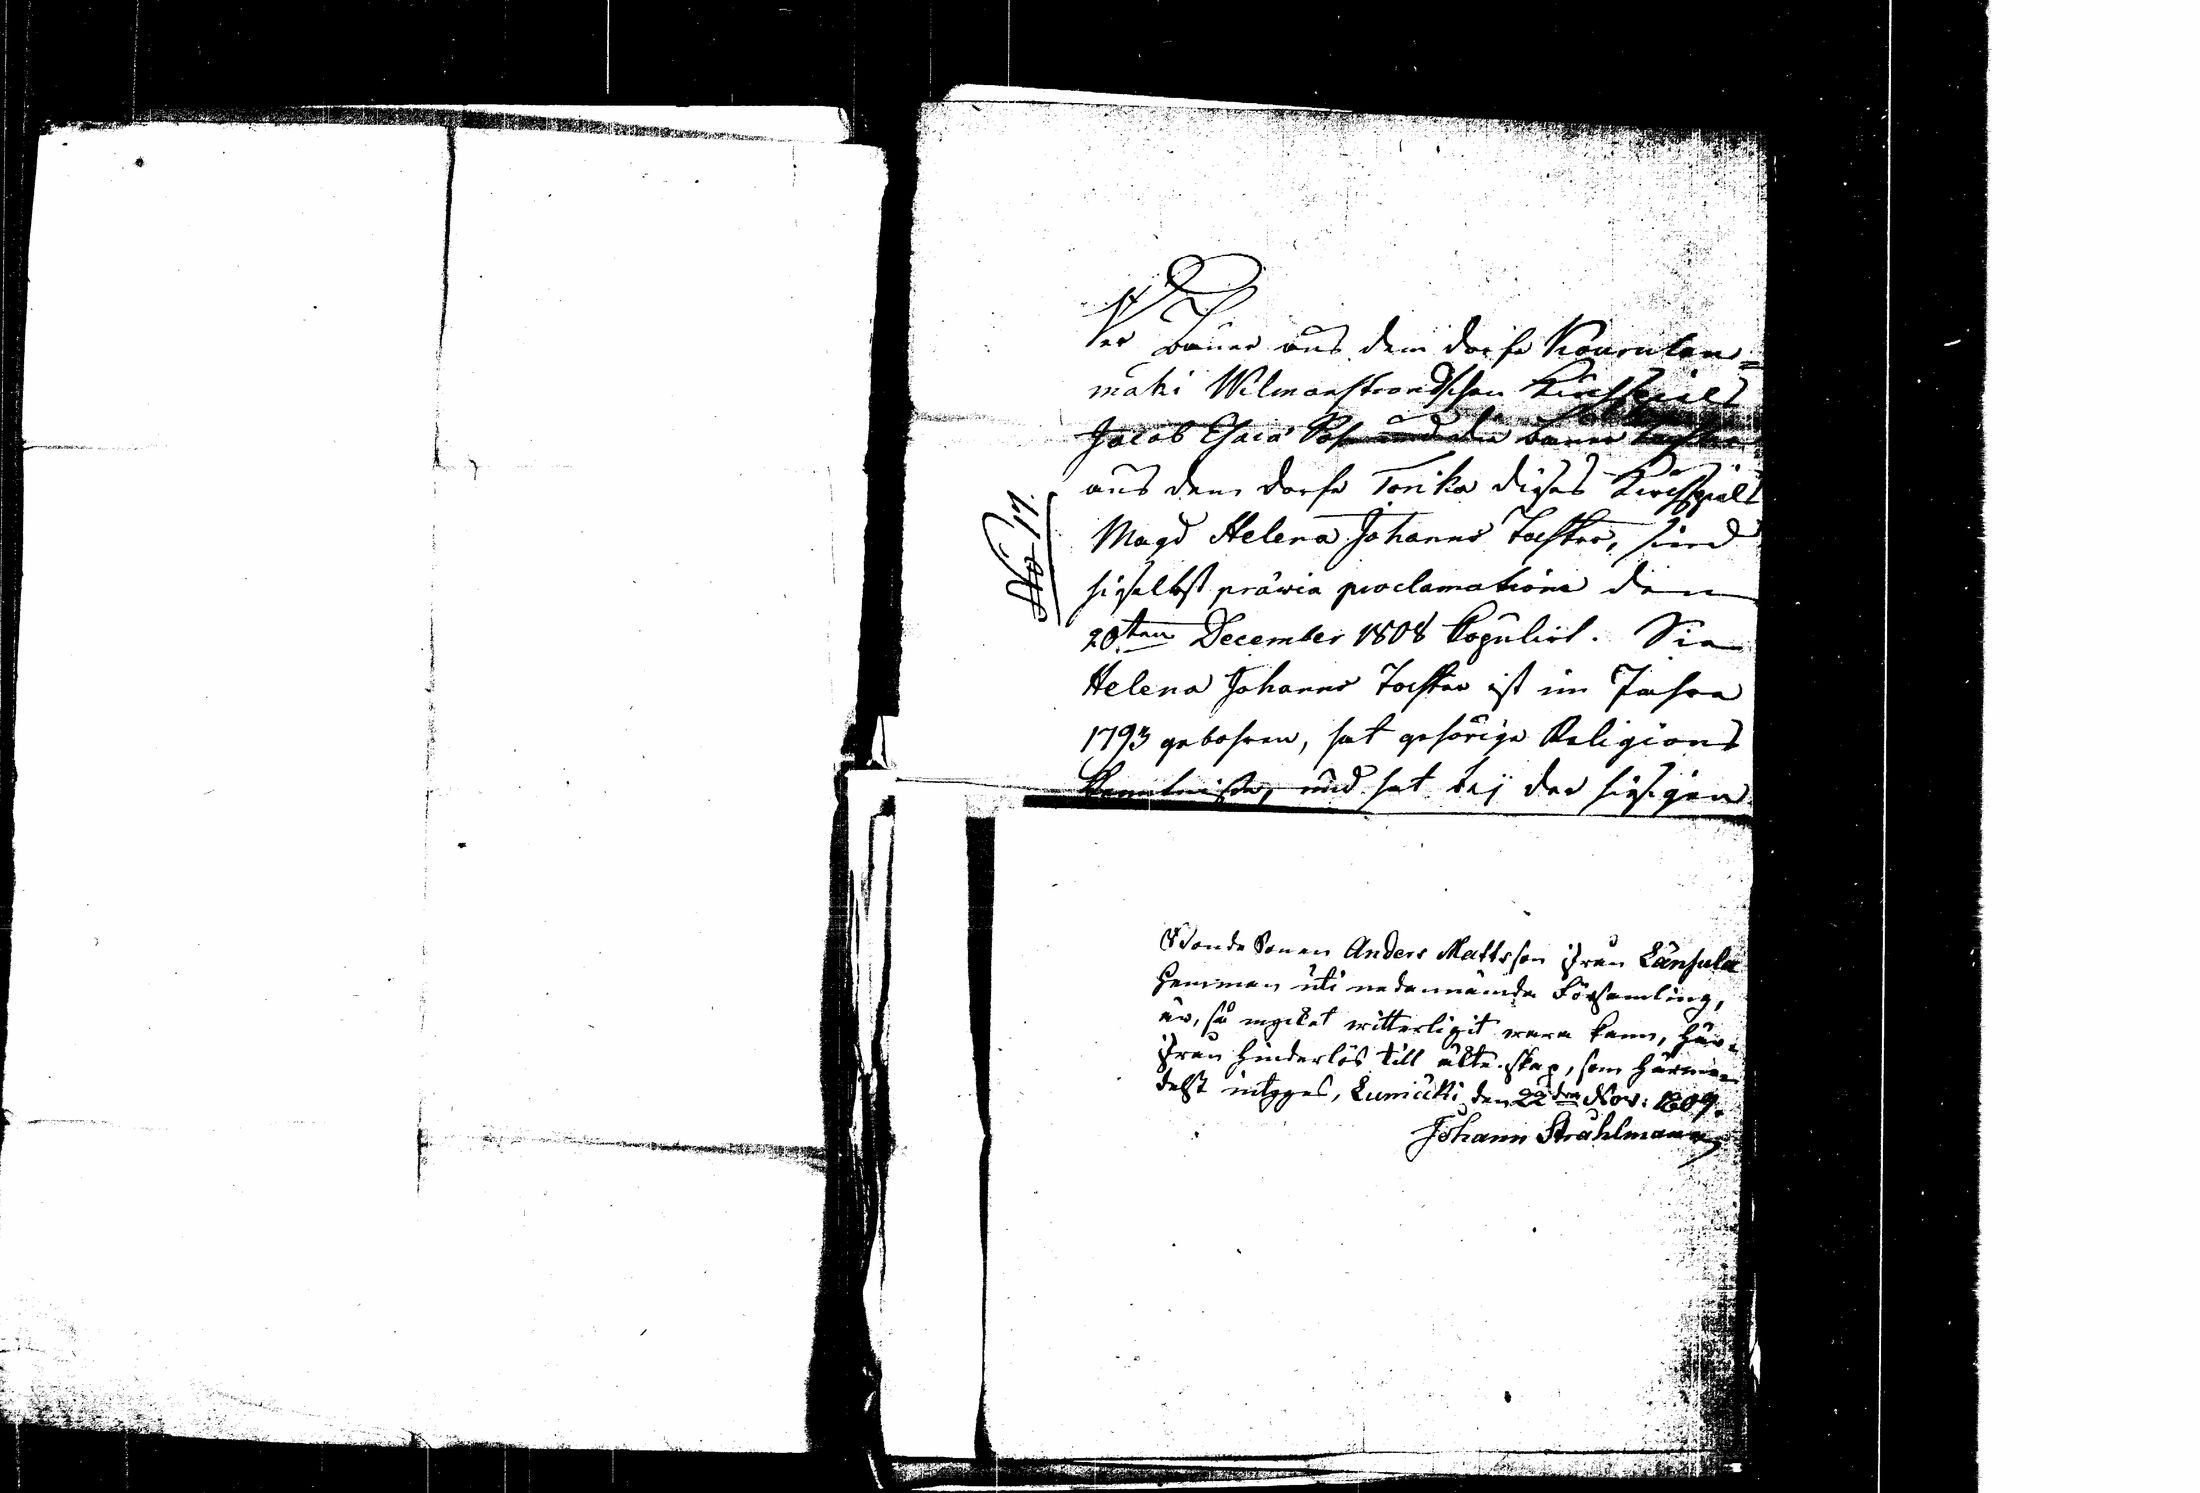 No 17.
Der Bauer aus dem Dorfe Kourulan=
mäki Wilmanstrandschen Kirchspiels
Jacob Esaia Sohn und die Bauer Tochter
aus dem Dorfe Torika dieses Kirchspiels
Magd Helena Johanns Tochter, sind
hieselbst präwia proclamatione den
20ten December 1808 kopuliert. Die
Helena Johanns Tochter ist im Jahre
1793 gebohren, hat gehörige Religions
Kenntnisse, und hat bey der hiesigen
Bonde Sonen Anders Mattsson ifrån Länsula
Hemman uti nedannämda Församling,
är, så mycket witterligit wara kann, här-
ifrån hinderlös till ächtenskap, som härme-
delst intyges, Lumiäcki den 22dra Nov: 1809.
Johann Strahlmann